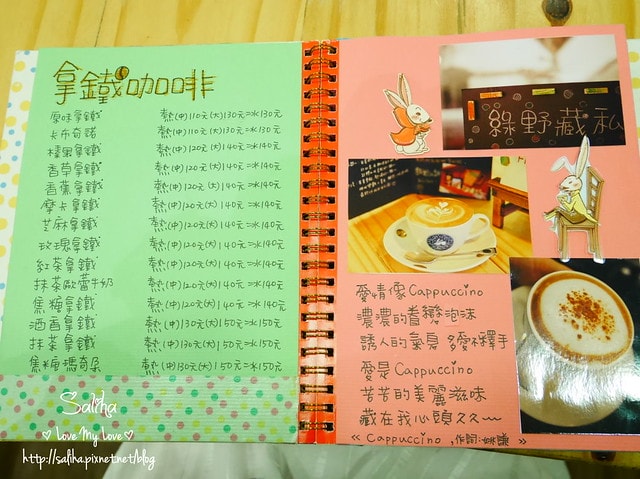 拿鐵咖啡
原味拿鐵 熱(中)110元(大)130元=冰130元
卡布奇諾 熱(中)110元(大)130元=冰130元
榛果拿鐵 熱(中)120元(大)140元=冰140元
香草拿鐵 熱(中)120元(大)140元=冰140元
香蕉拿鐵 熱(中)120元(大)140元=冰140元
摩卡拿鐵 熱(中)120元(大)140元=冰140元
芝麻拿鐵 熱(中)120元(大)140元=冰140元
玫瑰拿鐵 熱(中)120元(大)140元=冰140元
紅茶拿鐵 熱(中)120元(大)140元=冰140元
抹茶歐蕾牛奶 熱(中)120元(大)140元=冰140元
焦糖拿鐵 熱(中)120元(大)140元=冰140元
酒香拿鐵 熱(中)130元(大)150元=冰150元
抹茶拿鐵 熱(中)130元(大)150元=冰150元
焦糖瑪奇朵 熱(中)130元(大)150元=冰150元
Saliha
Love My Love
http://saliha.pixnet.net/blog
綠野藏私
愛情像Cappuccino
濃濃的眷戀泡沫
誘人的氣息 多愛不釋手
愛是Cappuccino
苦苦的美麗滋味
藏在我心頭久久~~
《Cappuccino,作詞:姚謙》